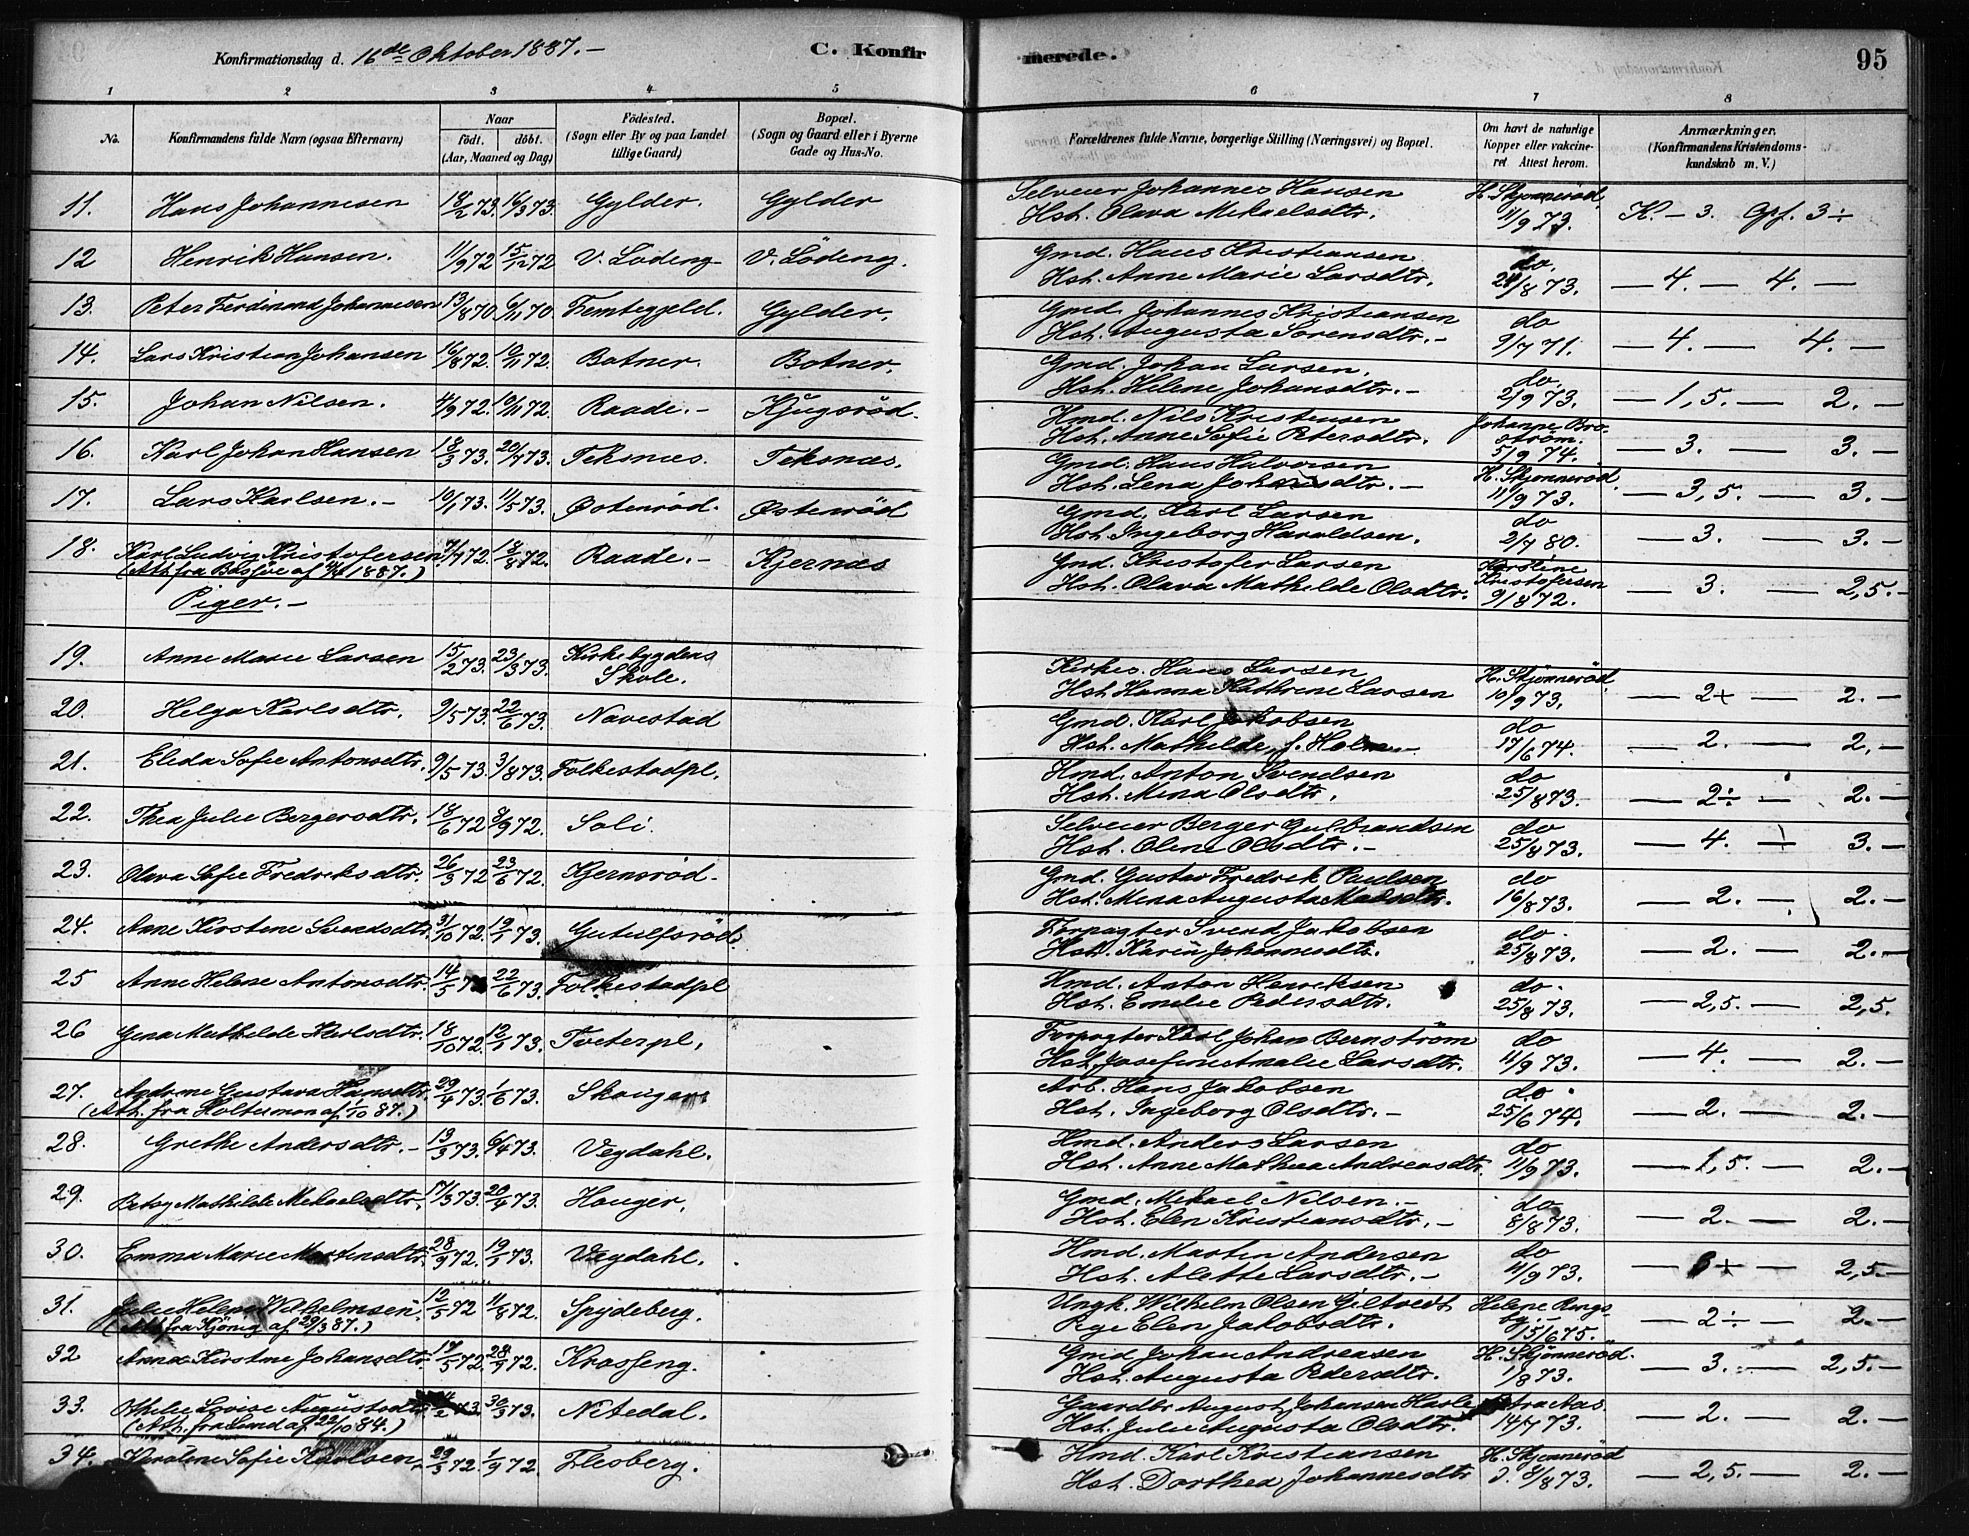 Konfirmationsdag d. 16de Oktober 1887.–
C. Konfirmerede.
95
1 2 3 4 5 6 7 8
No. Konfirmandens fulde Navn (ogsaa Efternavn) Naar födt. döbt. (Aar, Maaned og Dag) Födested. (Sogn eller By og paa Landet tillige Gaard) Bopæl. (Sogn og Gaard eller i Byerne Gade og Hus-No. Forældrenes fulde Navne, borgerlige Stilling (Næringsvei) og Bopæl. Om havt de naturlige Kopper eller vakcineret. Attest herom. Anmærkninger. (Konfirmandens Kristendomskundskab m. V.)
11. Hans Johannesen 18/2 73. 16/3 73. Gylder. Gylder Selveier Johannes Hansen H. Skjønnerød.
Hst. Olava Mikaelsdtr. 11/9 73. K. – 3. Opf. 3÷
12 Henrik Hansen. 11/9 72 15/12 72 V. Lödeng V. Lödeng. Gmd. Hans Kristiansen do.
Hst. Anne Marie Larsdtr. 28/8 73. – 4. – 4. –
13. Peter Ferdinand Johannesen 13/8 70 6/11 70 Femtegjeld. Gylder. Gmd. Johannes Kristiansen do
Hst. Augusta Sorensdtr. – 9/7 71. – 4. – 4. –
14. Lars Kristian Johansen 16/8 72. 10/11 72. Botner. Botner. Gmd. Johan Larsen. do.
Hst. Helene Johansdtr. – 2/9 73. – 1,5. – 2. –
15. Johan Nilsen. 4/9 72. 10/11 72. Raade. – Kjugsröd. Hmd. Nils Kristensen Johanne Broström.
Hst. Anne Sofie Petersdtr. 5/9 74. – 3. – 3. –
16. Karl Johan Hansen 18/3 73. 20/7 73. Teksnæs. Teksnæs. Gmd. Hans Halvorsen H. Skjønnerød.
Hst. Lena Johansdtr. – 11/9 73. – 3,5. – 3. –
17. Lars Karlsen. – 10/1 73. 11/5 73. Østenröd. Østenröd Gmd. Karl Larsen do
Hst. Ingeborg Haraldsen. 2/7 80. – 3. – 3. –
18. Karl Ludvig Kristofersen 7/7 72. 18/8 72. Raade. – Kjernæs Gmd. Kristofer Larsen Karoline Kristofersen
1887.) Hst. Olava Mathilde Olsdtr. 9/8 72. – 3. – 2,5. –
Piger. –
19. Anne Marie Larsen 15/2 73. 23/3 73. Kirkebygdens Skole. Hans Larsen H. Skjønnerød.
Hst. Hanna Kathrine Larsen 10/9 73. – 2+ – 2. –
20. Helga Karlsdtr. 9/5 73. 22/6 73. Navestad Gmd. Karl Jakobsen do
Hst. Mathilde, f. Holm – 17/6 74. – 2. – 2. –
21. Elida Sofie Antonsdtr. 9/5 73. 3/8 73. Folkestadpl. Hmd. Anton Svendsen do
Hst. Mina Olsdtr. 25/8 73. – 2÷ – 2. –
22. Thea Julie Bergersdtr. 18/6 72 8/9 72. Soli. Selveier Berger Gulbrandsen do
Hst. Oline Olsdtr. – 25/8 73. – 4. – 3. –
23. Olava Sofie Fredriksdtr. 26/3 72 23/6 72. Kjernsröd. Gmd. Gustav Fredrik Paulsen do
Hst. Mina Augusta 16/8 73. – 2. – 2. –
24. Anne Kirstine Svendsdtr. 31/10 72. 19/1 73. Gutulfsröd. Forpagter Svend Jakobsen do.
Hst. Karin Johannesdtr. 25/8 73. – 2. – 2. –
25 Anne Helene Antonsdtr. 14/5 22/6 73. Folkestadpl Hmd. Anton Henriksen do.
Hst. Emilie Pedersdtr. 25/8 73. – 2,5. – 2,5.
26 Gina Mathilde Karlsdtr. 18/10 72. 12/1 73. Tveterpl. Forpagter Karl Johan Bernström do
Hst. Josefine Amalie Larsdtr. 11/9 73. – 4. – 2. –
27. Gustava Hansdtr. 29/4 73. 1/6 73. Skouger Arb. Hans Jakobsen do.
(Att. fra 1/10 87.) Hst. Ingeborg Olsdtr. – 25/6 74. – 2. – 2. –
28. Grethe Andersdtr. – 13/3 73. 6/4 73. Vegdahl. Hmd. Anders Larsen do
Hst. Anne Mathea Andreasdtr. 11/9 73. – 1,5. – 2. –
29. Betsy Mathilde Mikaelsdtr. 17/3 73. 20/4 73. Houger. Gmd. Mikael Nilsen. – do
Hst. Elen Kristiansdtr. – 8/8 73. – 2. – 2. –
30. Emma Marie Martinsdtr. 28/9 72. 19/1 73. Vegdahl. Hmd. Martin Andersen do
Hst. Alette Larsdtr. – 11/9 73. 2,5. –
31. Julie Helene Wilhelmsen. 12/5 72 11/8 72. Spydeberg. Ungk. Wilhelm Olsen Giltvedt Helene Ringsby. –
(Att. fra 29/3 87.) Pige Elen Jakobsdtr. 15/6 75. – 2÷ – 2. –
32 Anna Kirstine Johansdtr. 17/5 72. 28/9 72. Krosseng. Gmd. Johan Andreasen H. Skjønneröd.
Hst. Augusta Pedersdtr. 1/8 73. – 3. – 2,5. –
33. Othilie Lovise Augustsdtr. 30/3 73. Nitedal. Gaardbr. August Johansen Aas
(Att. fra Lund af 22/10 84.) Hst. Julie Augusta Olsdtr. 14/7 73. – 2. – 2. –
34. Karoline Sofie Karlsen 29/3 72 1/9 72. Flesberg. Hmd. Karl Kristiansen H. Skjønnerød
Hst. Dorthea Johannesdtr 8/8 73. – 2,5. – 2. –